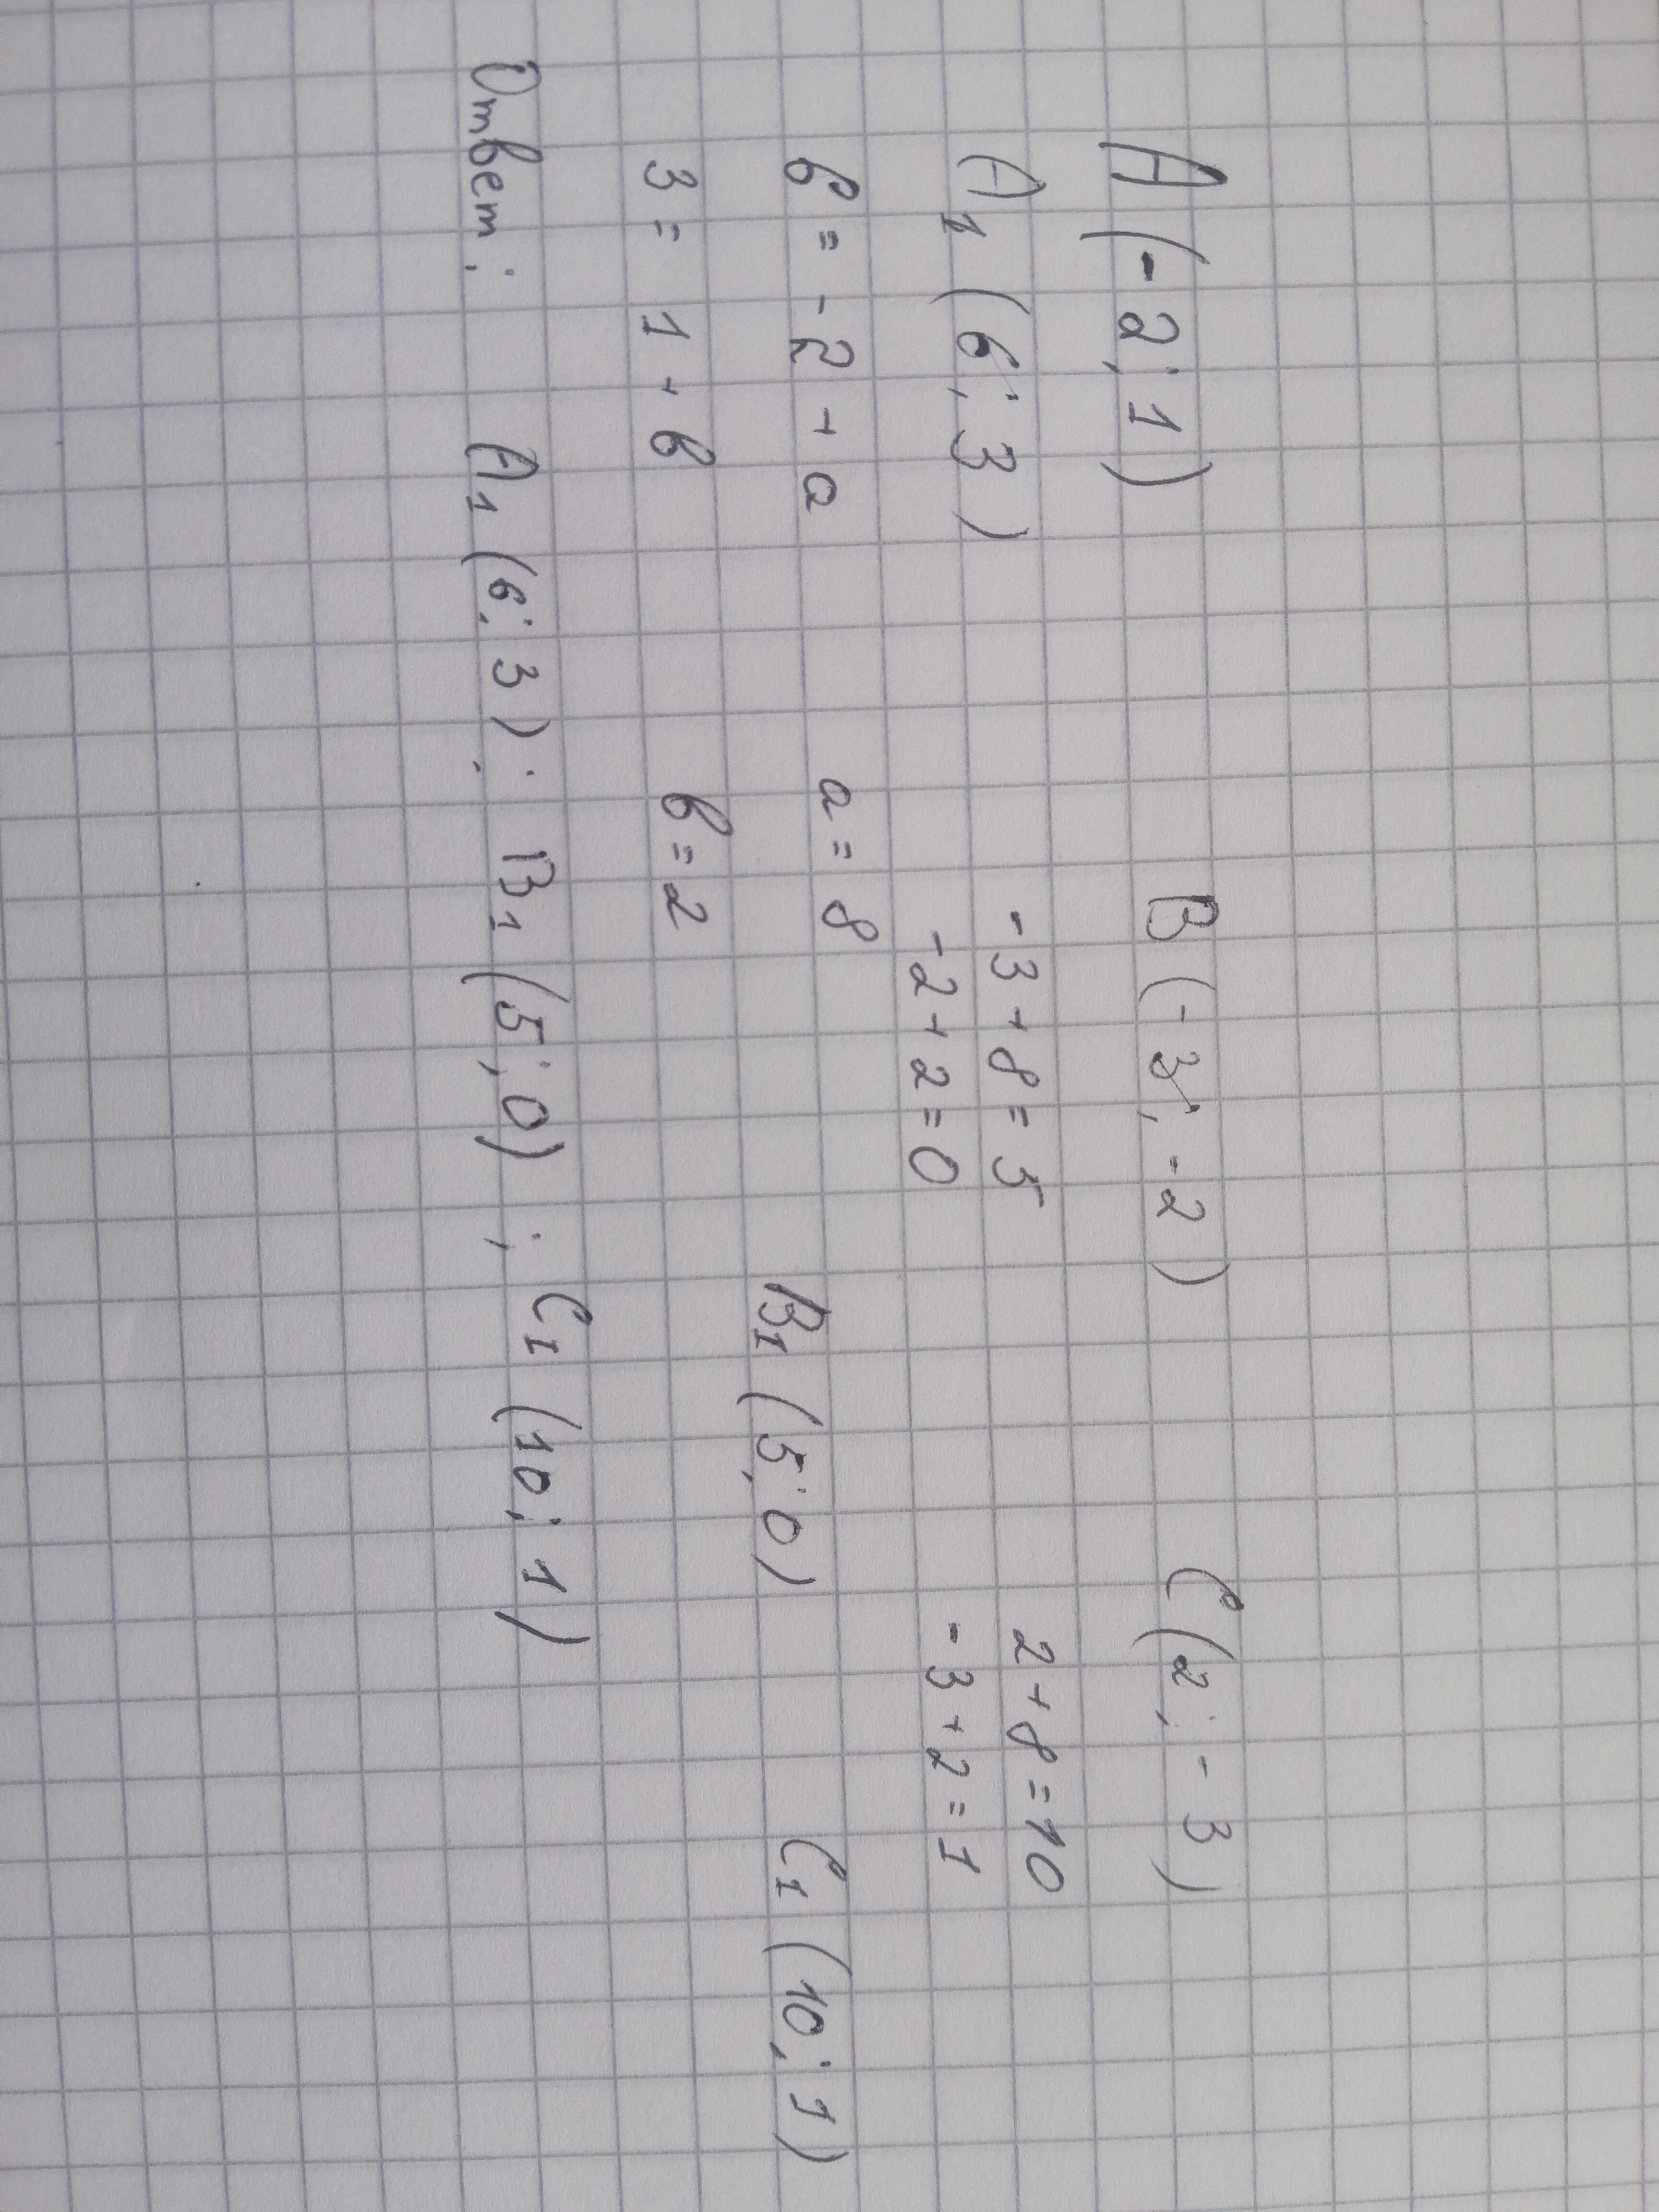 A (-2; 1) B (-3; -2) C (2; -3)
A1 (6; 3) -3 + 8 = 5 2 + 8 = 10
-2 + 2 = 0 -3 + 2 = 1
6 = -2 + a a = 8 B1 (5; 0) C1 (10; 1)
3 = 1 + в в = 2
Ответ: A1 (6; 3); B1 (5; 0); C1 (10; 1)